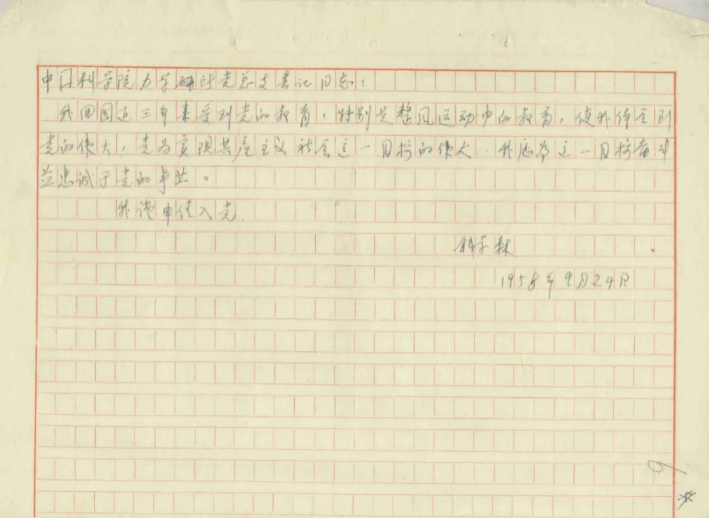 中国科学院力学研究所党总支书记同志：
我回国近三年来受到党的教育，特别是整风运动中的教育，使我体会到
党的伟大，党为实现共产主义社会这一目标的伟大。我愿为这一目标奋斗
并忠诚于党的事业。
我谨申请入党
1958年9月24日